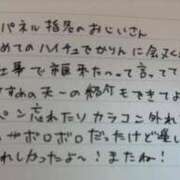 パネル指名のおじいさん
めてのハイチュでかりんに会えく
仕事で福来たって言ってて
すすめの天一の紹介もできてよ
ペン忘れたりカラコン外れ
ザボロボロだったけど優し
れしかったよ〜!またね!